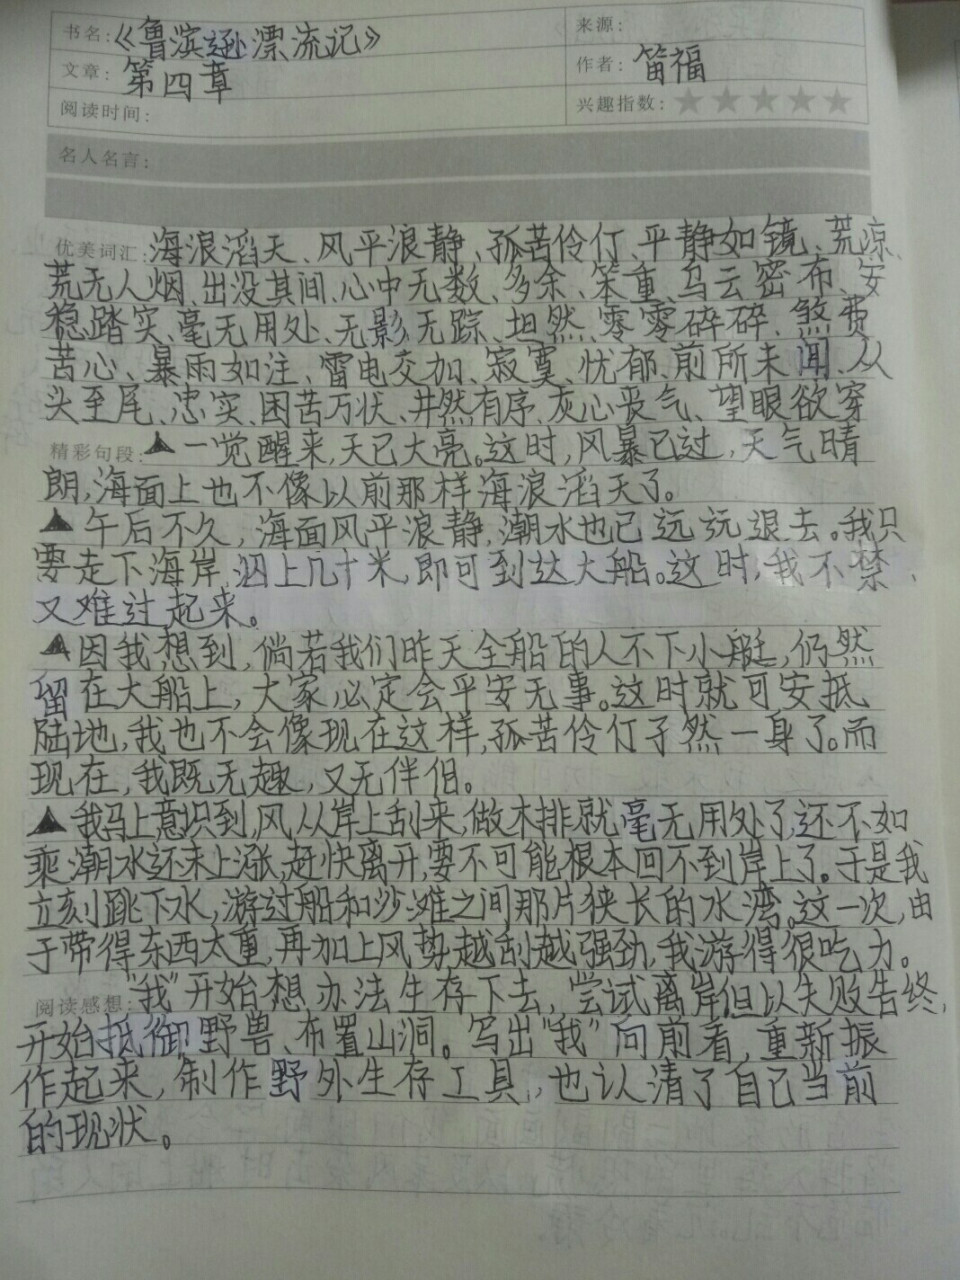 书名:《鲁滨逊漂流记》 来源:
文章:第四章 作者:笛福
阅读时间: 兴趣指数:★★★★★
名人名言:
优美词汇:海浪滔天、风平浪静、孤苦伶仃、平静如镜、荒凉、
荒无人烟、出没其间、心中无数、多余、笨重、乌云密布、安
稳踏实、毫无用处、无影无踪、坦然、零零碎碎、煞费
苦心、暴雨如注、雷电交加、寂寞、忧郁、前所未闻、从
头至尾、忠实、困苦万状、井然有序、灰心丧气、望眼欲穿
精彩句段:▲一觉醒来,天已大亮。这时,风暴已过,天气晴
朗,海面上也不像以前那样海浪滔天了。
▲午后不久,海面风平浪静,潮水也已远远退去。我只
要走下海岸,泅上几十米,即可到达大船。这时,我不禁
又难过起来。
▲因我想到,倘若我们昨天全船的人不下小艇,仍然
留在大船上,大家必定会平安无事。这时就可安抵
陆地,我也不会像现在这样,孤苦伶仃孑然一身了。而
现在,我既无趣,又无伴侣。
▲我马上意识到,风从岸上刮来,做木排就毫无用处了,还不如
乘潮水还未上涨,赶快离开,要不可能根本回不到岸上了。于是我
立刻跳下水,游过船和沙滩之间那片狭长的水湾。这一次,由
于带得东西太重,再加上风势越刮越强劲,我游得很吃力。
阅读感想:"我"开始想办法生存下去,尝试离岸但以失败告终,
开始抵御野兽、布置山洞。写出"我"向前看,重新振
作起来,制作野外生存工具,也认清了自己当前
的现状。